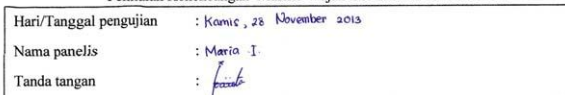 Hari/Tanggal pengujian : Kamis, 28 November 2013
Nama panelis : Maria I.
Tanda tangan :